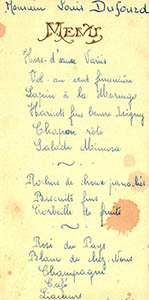 Monsieur Louis Dufourd
MENU
Hors-d'œuvre Variés
Vol-au-vent financière
Lapin à la
Haricots fins beurre Isigny
Chapon rôti
Salade Mimosa
~
Rochers de choux panachés
Biscuits fins
Corbeille de fruits
~
Rosé du Pays
Blanc de chez-Nous
Champagne
Café
Liqueurs